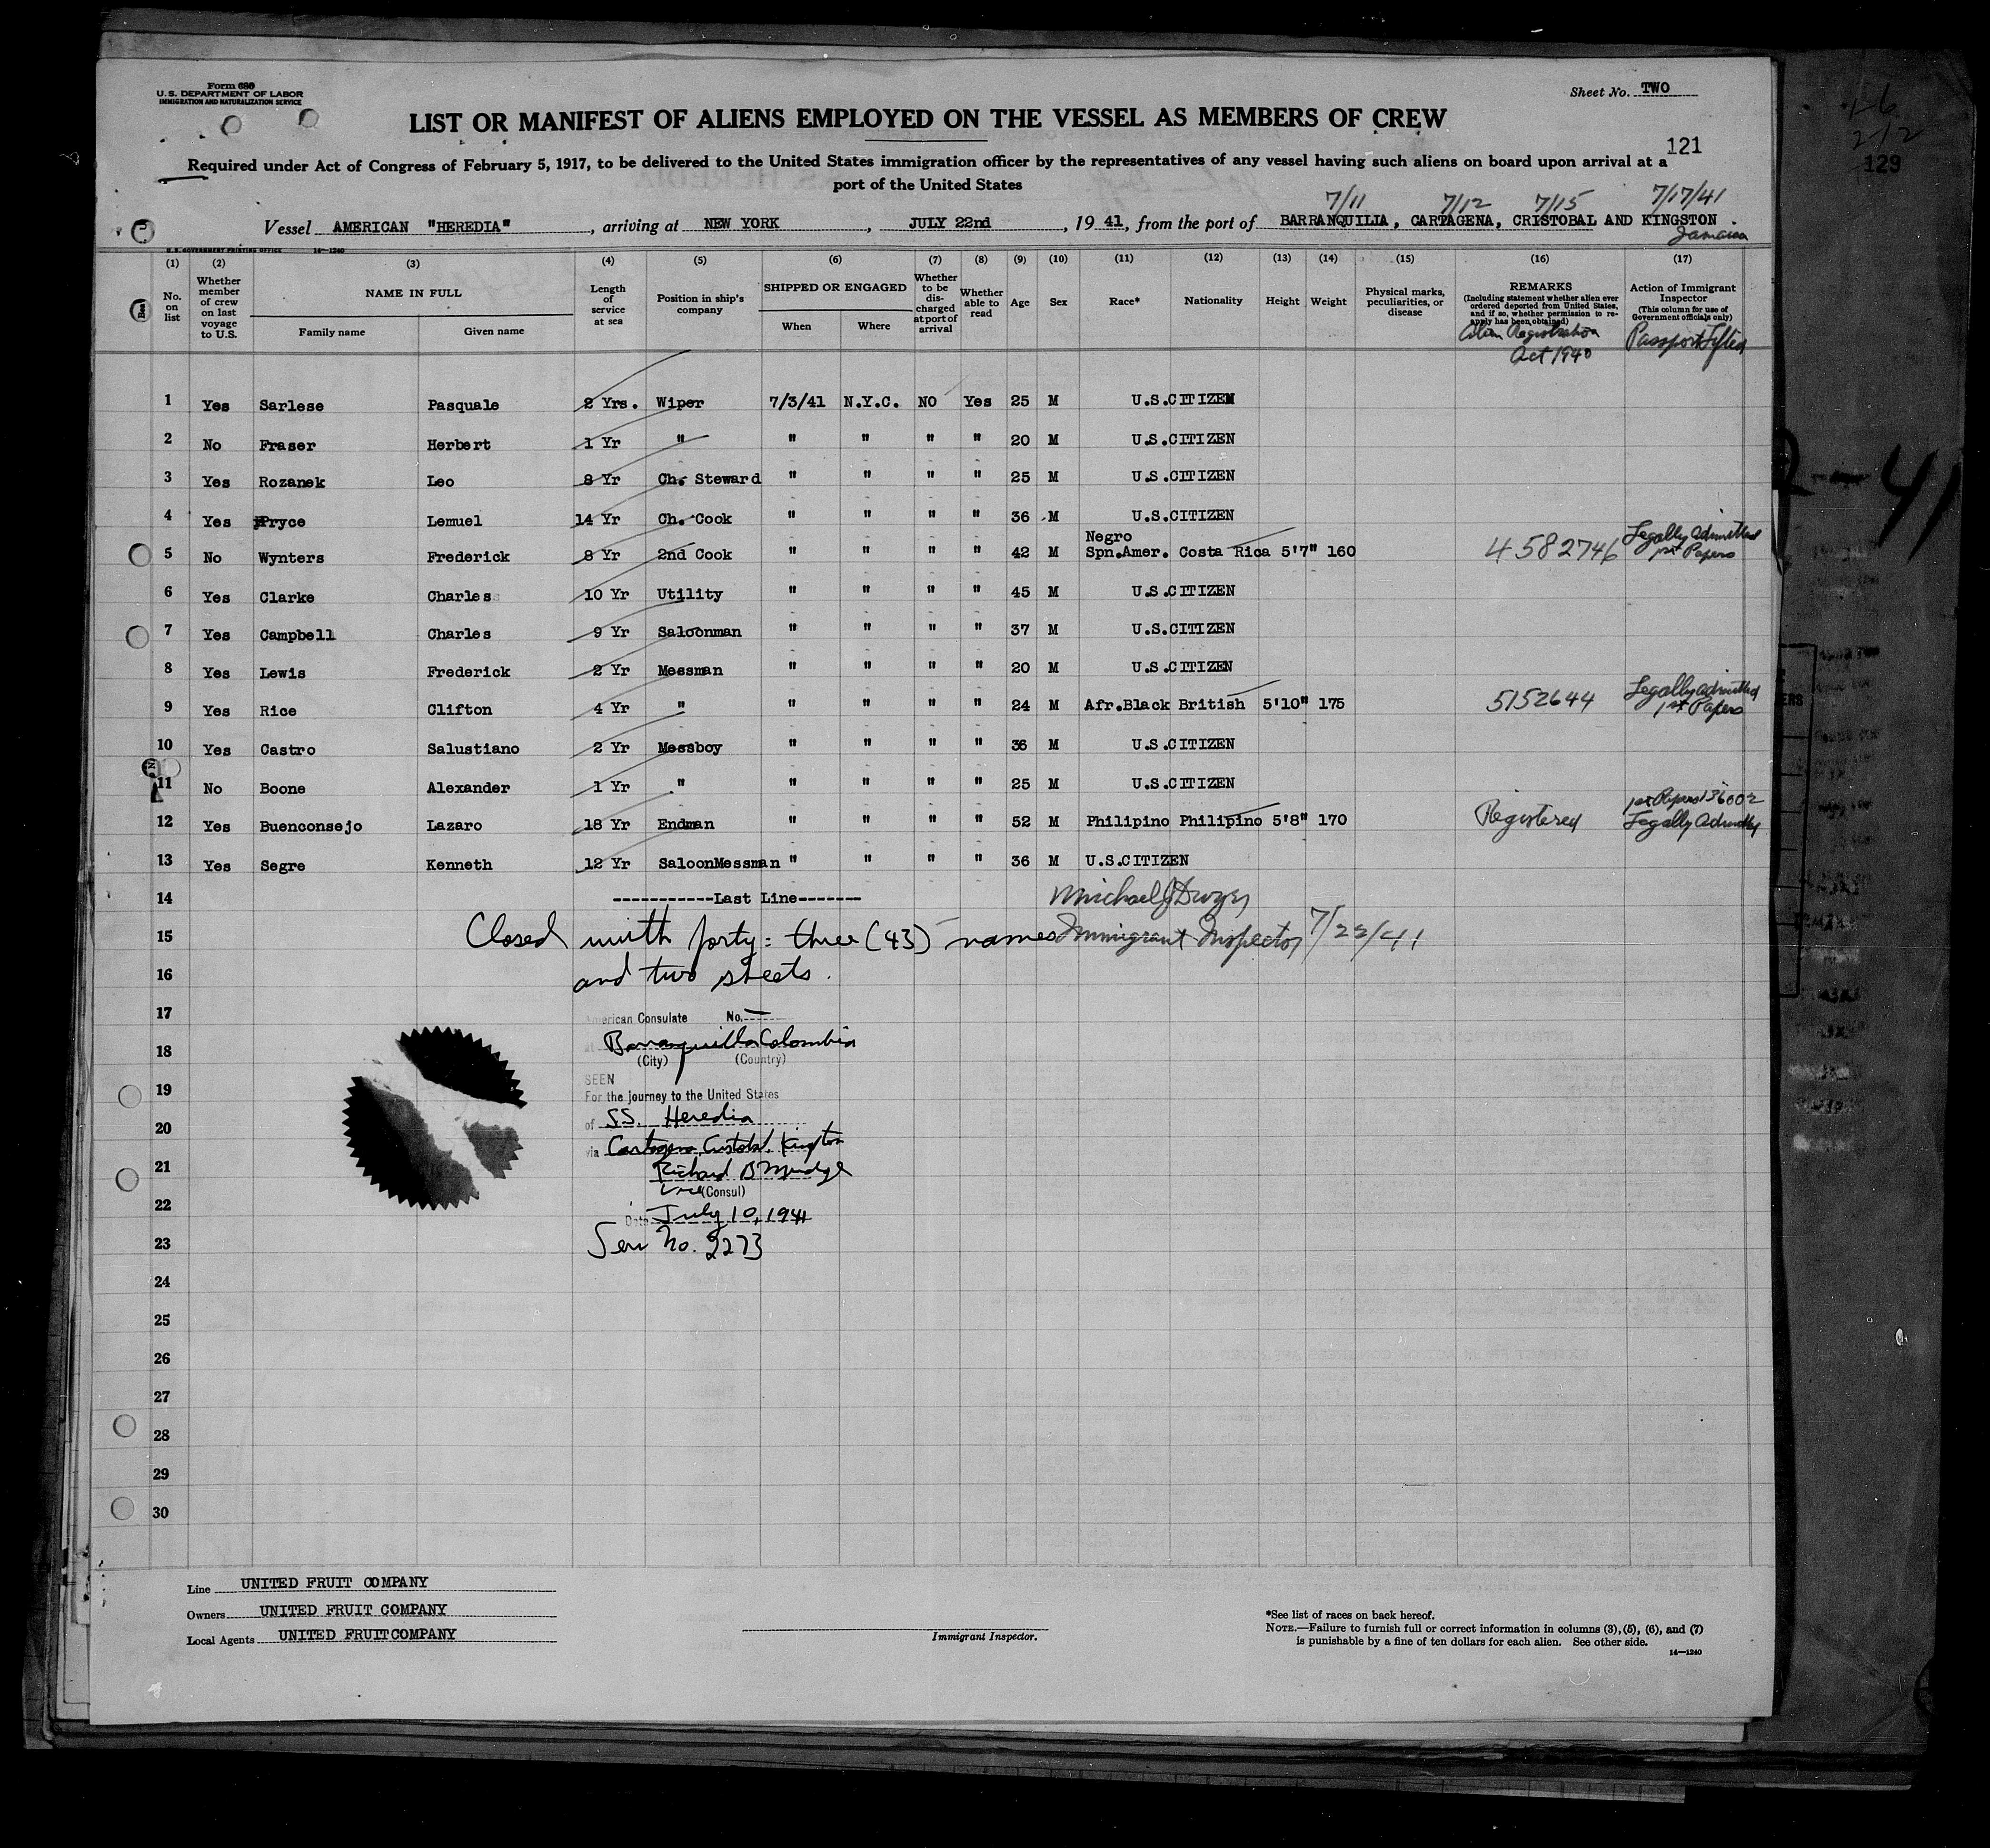 Form 680
U.S. DEPARTMENT OF LABOR
IMMIGRATION AND NATURALIZATION SERVICE
Sheet No. TWO
LIST OR MANIFEST OF ALIENS EMPLOYED ON THE VESSEL AS MEMBERS OF CREW
121
129
Required under Act of Congress of February 5, 1917, to be delivered to the United States immigration officer by the representatives of any vessel having such aliens on board upon arrival at a
port of the United States
7/11 7/12 7/15 7/17/41
Vessel AMERICAN "HEREDIA", arriving at NEW YORK, JULY 22nd, 19 41, from the port of BARRANQUILIA, CARTAGENA, CRISTOBAL AND KINGSTON.
Jamaica
U.S. GOVERNMENT PRINTING OFFICE 14—1240
(1) (2) (3) (4) (5) (6) (7) (8) (9) (10) (11) (12) (13) (14) (15) (16) (17)
No. on list
Whether member of crew on last voyage to U.S.
NAME IN FULL
Family name Given name
Length of service at sea
Position in ship's company
SHIPPED OR ENGAGED
When Where
Whether to be discharged at port of arrival
Whether able to read
Age
Sex
Race*
Nationality
Height
Weight
Physical marks, peculiarities, or disease
REMARKS
(Including statement whether alien ever ordered deported from United States, and if so, whether permission to re-apply has been obtained)
Alien Registration
Act 1940
Action of Immigrant Inspector
(This column for use of Government officials only)
Passport Lifted
1 Yes Sarlese Pasquale 2 Yrs. Wiper 7/3/41 N.Y.C. NO Yes 25 M U.S.CITIZEN
2 No Fraser Herbert 1 Yr " " " " " 20 M U.S.CITIZEN
3 Yes Rozanek Leo 8 Yr Ch. Steward " " " " 25 M U.S.CITIZEN
4 Yes Pryce Lemuel 14 Yr Ch. Cook " " " " 36 M U.S.CITIZEN
5 No Wynters Frederick 8 Yr 2nd Cook " " " " 42 M Negro Spn.Amer. Costa Rica 5'7" 160 4582746 Legally Admitted 1st Papers
6 Yes Clarke Charles 10 Yr Utility " " " " 45 M U.S.CITIZEN
7 Yes Campbell Charles 9 Yr Saloonman " " " " 37 M U.S.CITIZEN
8 Yes Lewis Frederick 2 Yr Messman " " " " 20 M U.S.CITIZEN
9 Yes Rice Clifton 4 Yr " " " " " 24 M Afr.Black British 5'10" 175 5152644 Legally Admitted 1st Papers
10 Yes Castro Salustiano 2 Yr Messboy " " " " 36 M U.S.CITIZEN
11 No Boone Alexander 1 Yr " " " " " 25 M U.S.CITIZEN
12 Yes Buenconsejo Lazaro 18 Yr Endman " " " " 52 M Philipino Philipino 5'8" 170 Registered 1st Papers 136002 Legally Admitted
13 Yes Segre Kenneth 12 Yr SaloonMessman " " " " 36 M U.S.CITIZEN
14 -----------Last Line------- Michael J Dwyer
15 Closed with forty-three (43) names Immigrant Inspector 7/22/41
16 and two sheets.
17 American Consulate No. —
18 at Barranquilla Colombia
(City) (Country)
19 SEEN
For the journey to the United States
20 of SS. Heredia
via Cartagena, Cristobal, Kingston
21 Richard B Mudge
Vice (Consul)
22 Date July 10, 1941
23 Serv No. 2273
24
25
26
27
28
29
30
Line UNITED FRUIT COMPANY
Owners UNITED FRUIT COMPANY
Local Agents UNITED FRUITCOMPANY
Immigrant Inspector.
*See list of races on back hereof.
NOTE.—Failure to furnish full or correct information in columns (3), (5), (6), and (7)
is punishable by a fine of ten dollars for each alien. See other side.
14—1240
41